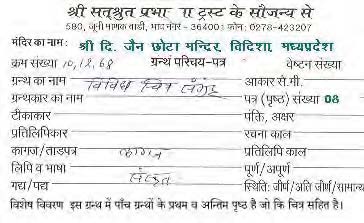 श्री सत्श्रुत प्रभावना ट्रस्ट के सौजन्य से
580, जूनी माणेक वाडी, भाव नगर - 364001 फोन : 0278-423207
मंदिर का नाम : श्री दि. जैन छोटा मन्दिर, विदिशा, मध्यप्रदेश
क्रम संख्या 10,12,68 ग्रंथ परिचय-पत्र वेष्टन संख्या
ग्रन्थ का नाम विविध चित्र संग्रह आकार से.मी.
ग्रन्थकार का नाम पत्र (पृष्ठ) संख्या 08
टीकाकार पंक्ति, अक्षर
प्रतिलिपिकार रचना काल
कागज/ताडपत्र कागज प्रतिलिपि काल
लिपि व भाषा संस्कृत पूर्ण/अपूर्ण
गद्य/पद्य स्थिति: जीर्ण/अति जीर्ण/सामान्य
विशेष विवरण इस ग्रन्थ में पाँच ग्रन्थों के प्रथम व अन्तिम पृष्ठ है जो कि चित्र सहित है।